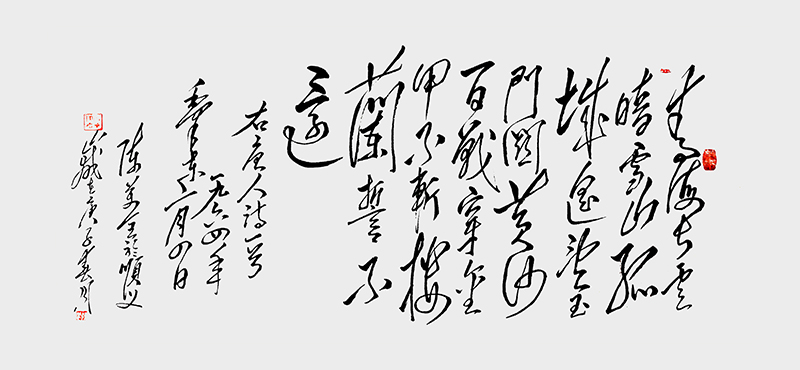 青海長雲
暗雪山孤
城遥望玉
門關黄沙
百戰穿金
甲不斬樓
蘭誓不
還
右唐人詩一首
一九六四年
毛澤東二月四日
陈萬全於順义
歲在庚子春月